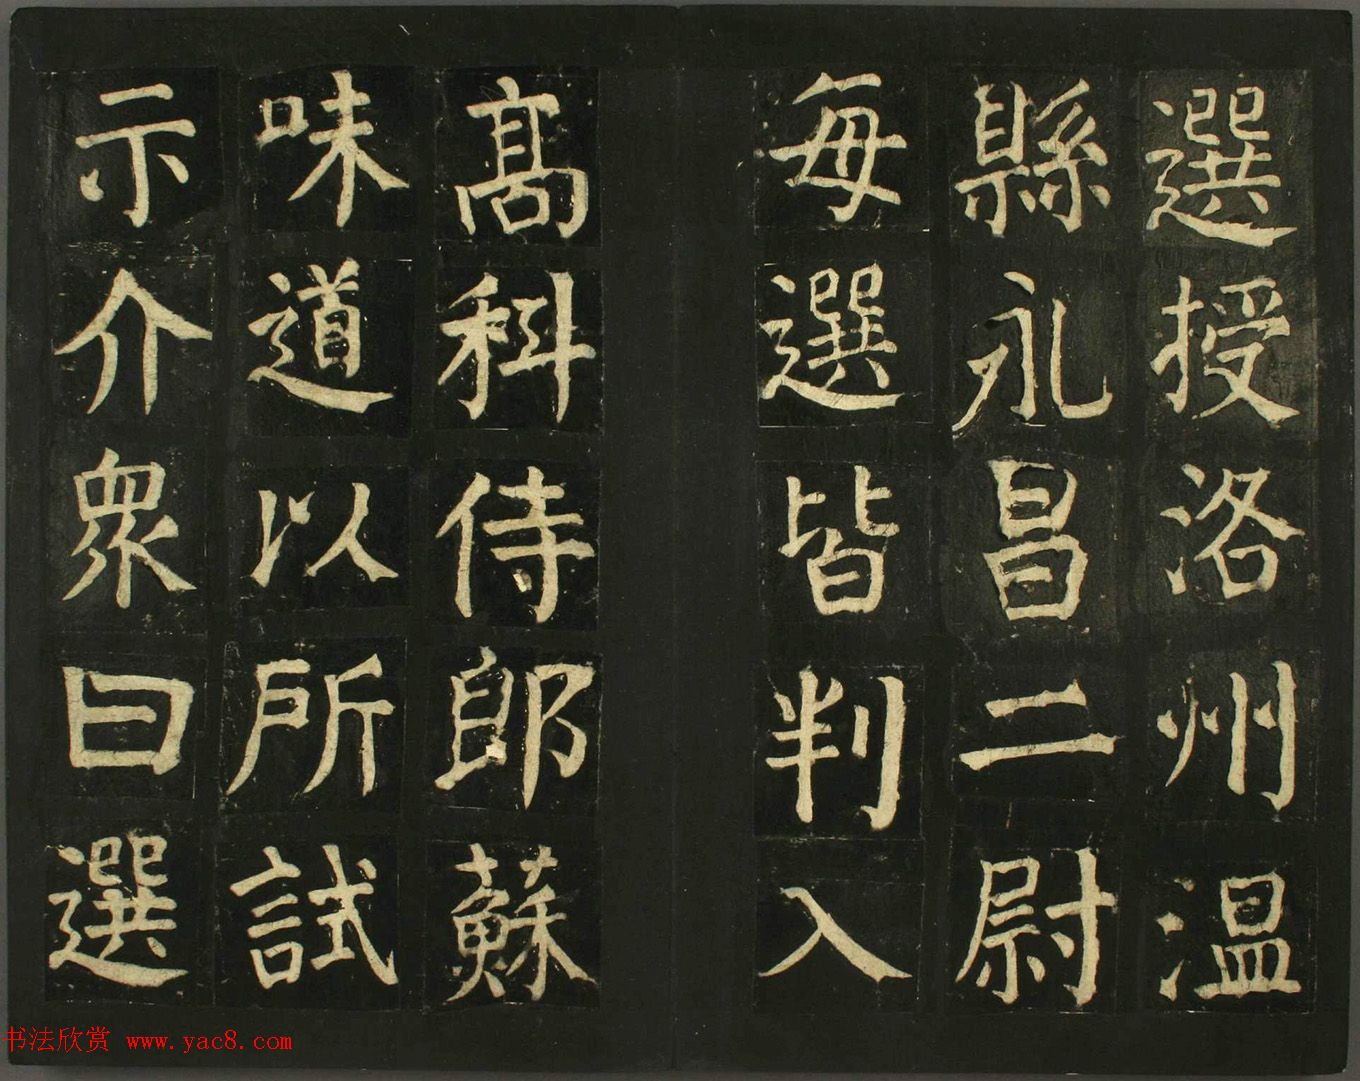 選授洛州温
縣永昌二尉
每選皆判入
髙科侍郎蘇
味道以所試
示介衆曰選
书法欣赏 www.yac8.com